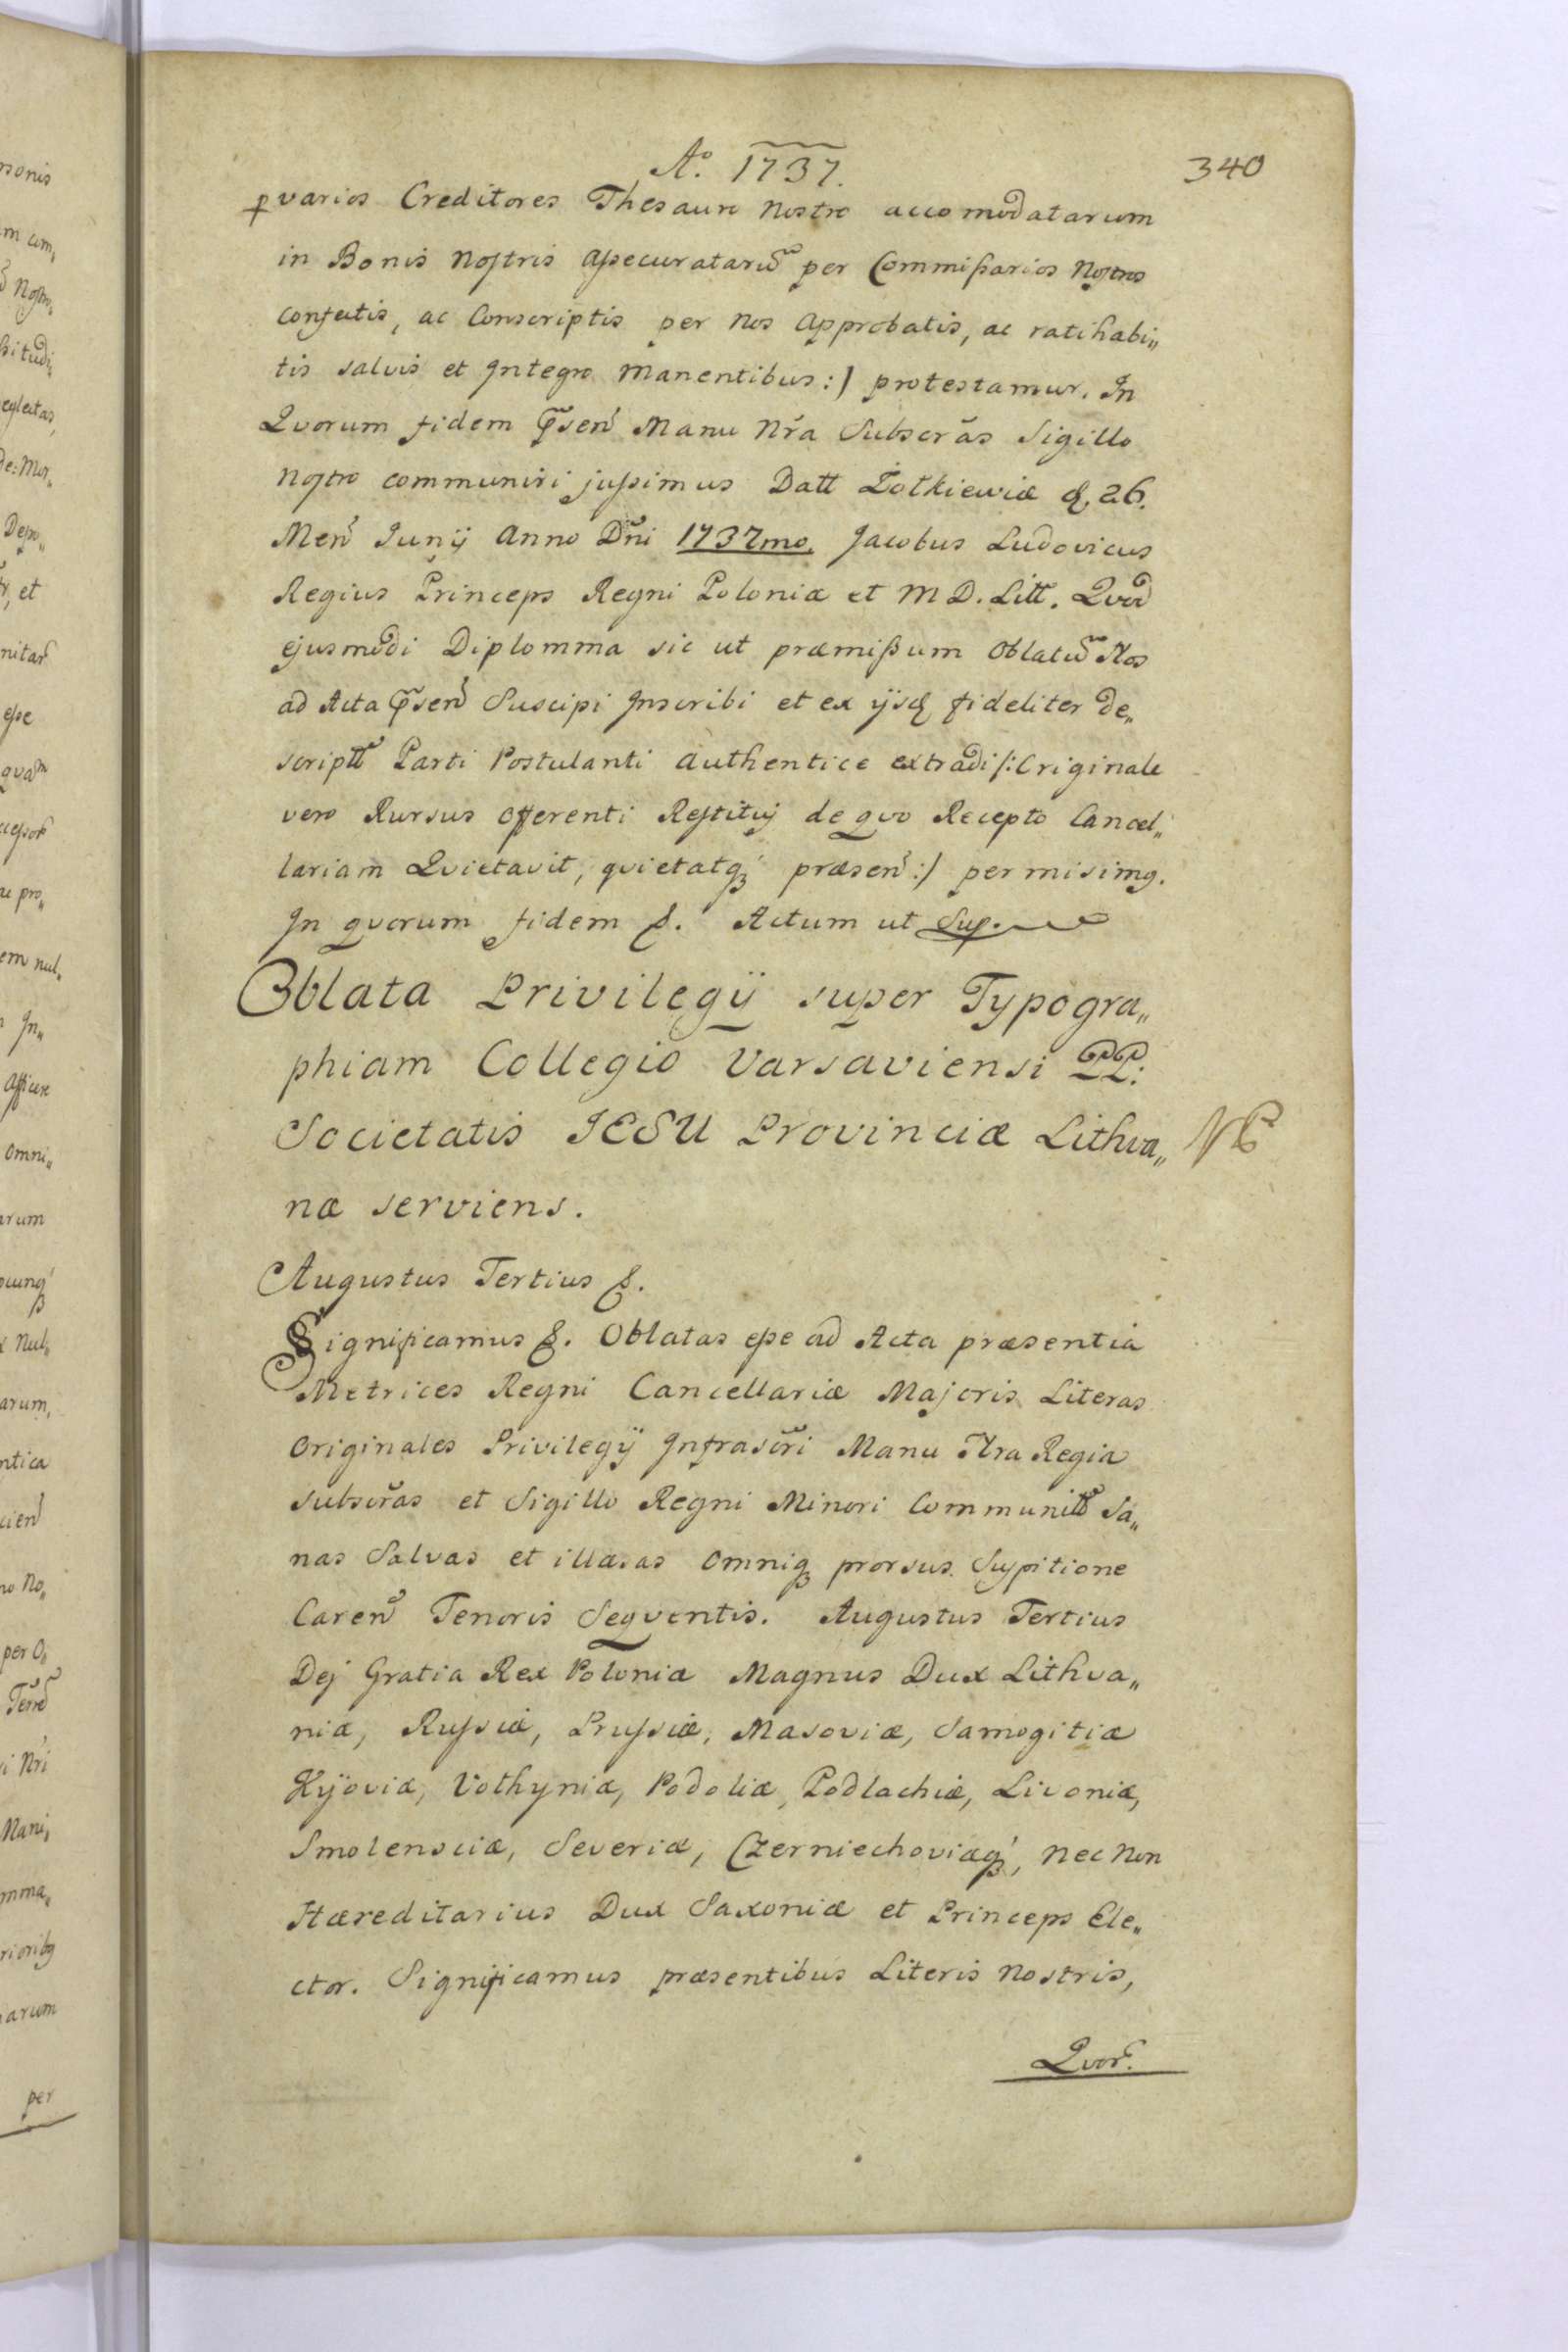 Aº. 1737.
340
p varios Creditores Thesauro Nostro accomodatarum
in Bonis Nostris Assecuratarũ per Commissarios Nostros
confectis, ac Conscriptis per Nos Approbatis, ac ratihabi„
tis salvis et Integro Manentibus:/ protestamur. In
Qvorum fidem p̃sen̄ Manu Nr̃a Subscr̃as Sigillo
Nostro communiri jussimus Datt Żołkiewiæ d. 26.
Men̄ Junÿ Anno Dñi 1737mo. Jacobus Ludovicus
Regius Princeps Regni Poloniæ et M D. Litt. Qvod
ejusmodi Diplomma sic ut præmissum Oblatũ Nos
ad Acta p̃sen̄ Suscipi Inscribi et ex ÿsq fideliter de„
script̃ Parti Postulanti Authentice extradi /:Originale
vero Rursus Offerenti Restituj de qvo Recepto Cancel„
lariam Qvietavit, qvietatq́ præsen̄:/ permisimq.
In qvorum fidem &. Actum ut Sup.
Oblata Privilegÿ super Typogra„
phiam Collegio Varsaviensi PP:
Societatis JESU Provinciæ Lithva„
næ serviens.
NB
Augustus Tertius &.
Significamus &. Oblatas esse ad Acta præsentia
Metrices Regni Cancellariæ Majoris Literas
Originales Privilegÿ Infrascr̃i Manu Nra Regia
subscr̃as et Sigillo Regni Minori Communit̃ Sa„
nas Salvas et illæsas Omniq prorsus Suspitione
Caren̄ Tenoris Seqventis. Augustus Tertius
Dej Gratia Rex Poloniæ Magnus Dux Lithva„
niæ, Russiæ, Prussiæ, Masoviæ, Samogitiæ
Kÿoviæ, Volhyniæ, Podoliæ, Podlachiæ, Livoniæ,
Smolensciæ, Severiæ, Czerniechoviæq́, Nec Non
Hæreditarius Dux Saxoniæ et Princeps Ele„
ctor. Significamus præsentibus Literis Nostris,
Qvor̃.